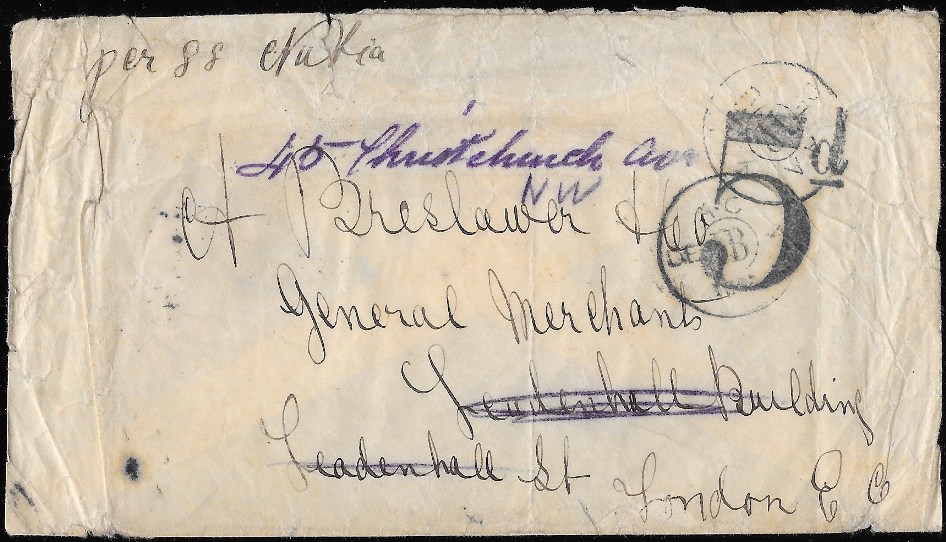 per SS Nubia
45 Christchurch Ave
NW
5d
H Breslawer & Co
B
General Merchants
Leadenhall Building
Leadenhall St London E C